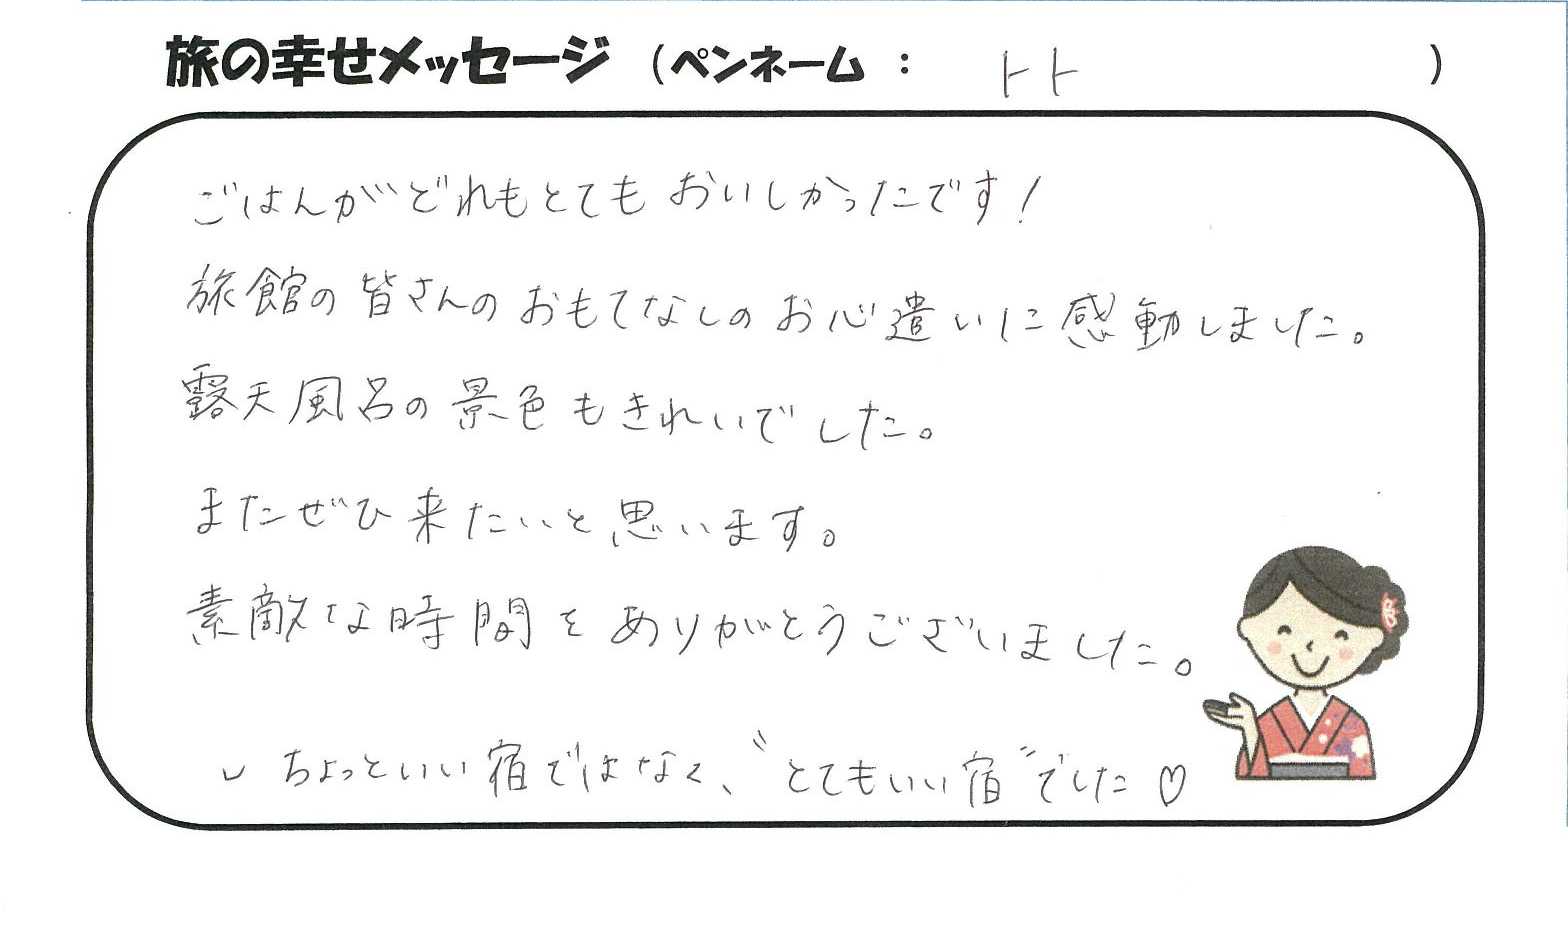 旅の幸せメッセージ (ペンネーム : トト )
ごはんがどれもとてもおいしかったです!
旅館の皆さんのおもてなしのお心遣いに感動しました。
露天風呂の景色もきれいでした。
またぜひ来たいと思います。
素敵な時間をありがとうございました。
ちょっといい宿ではなく、〝とてもいい宿〟でした♡